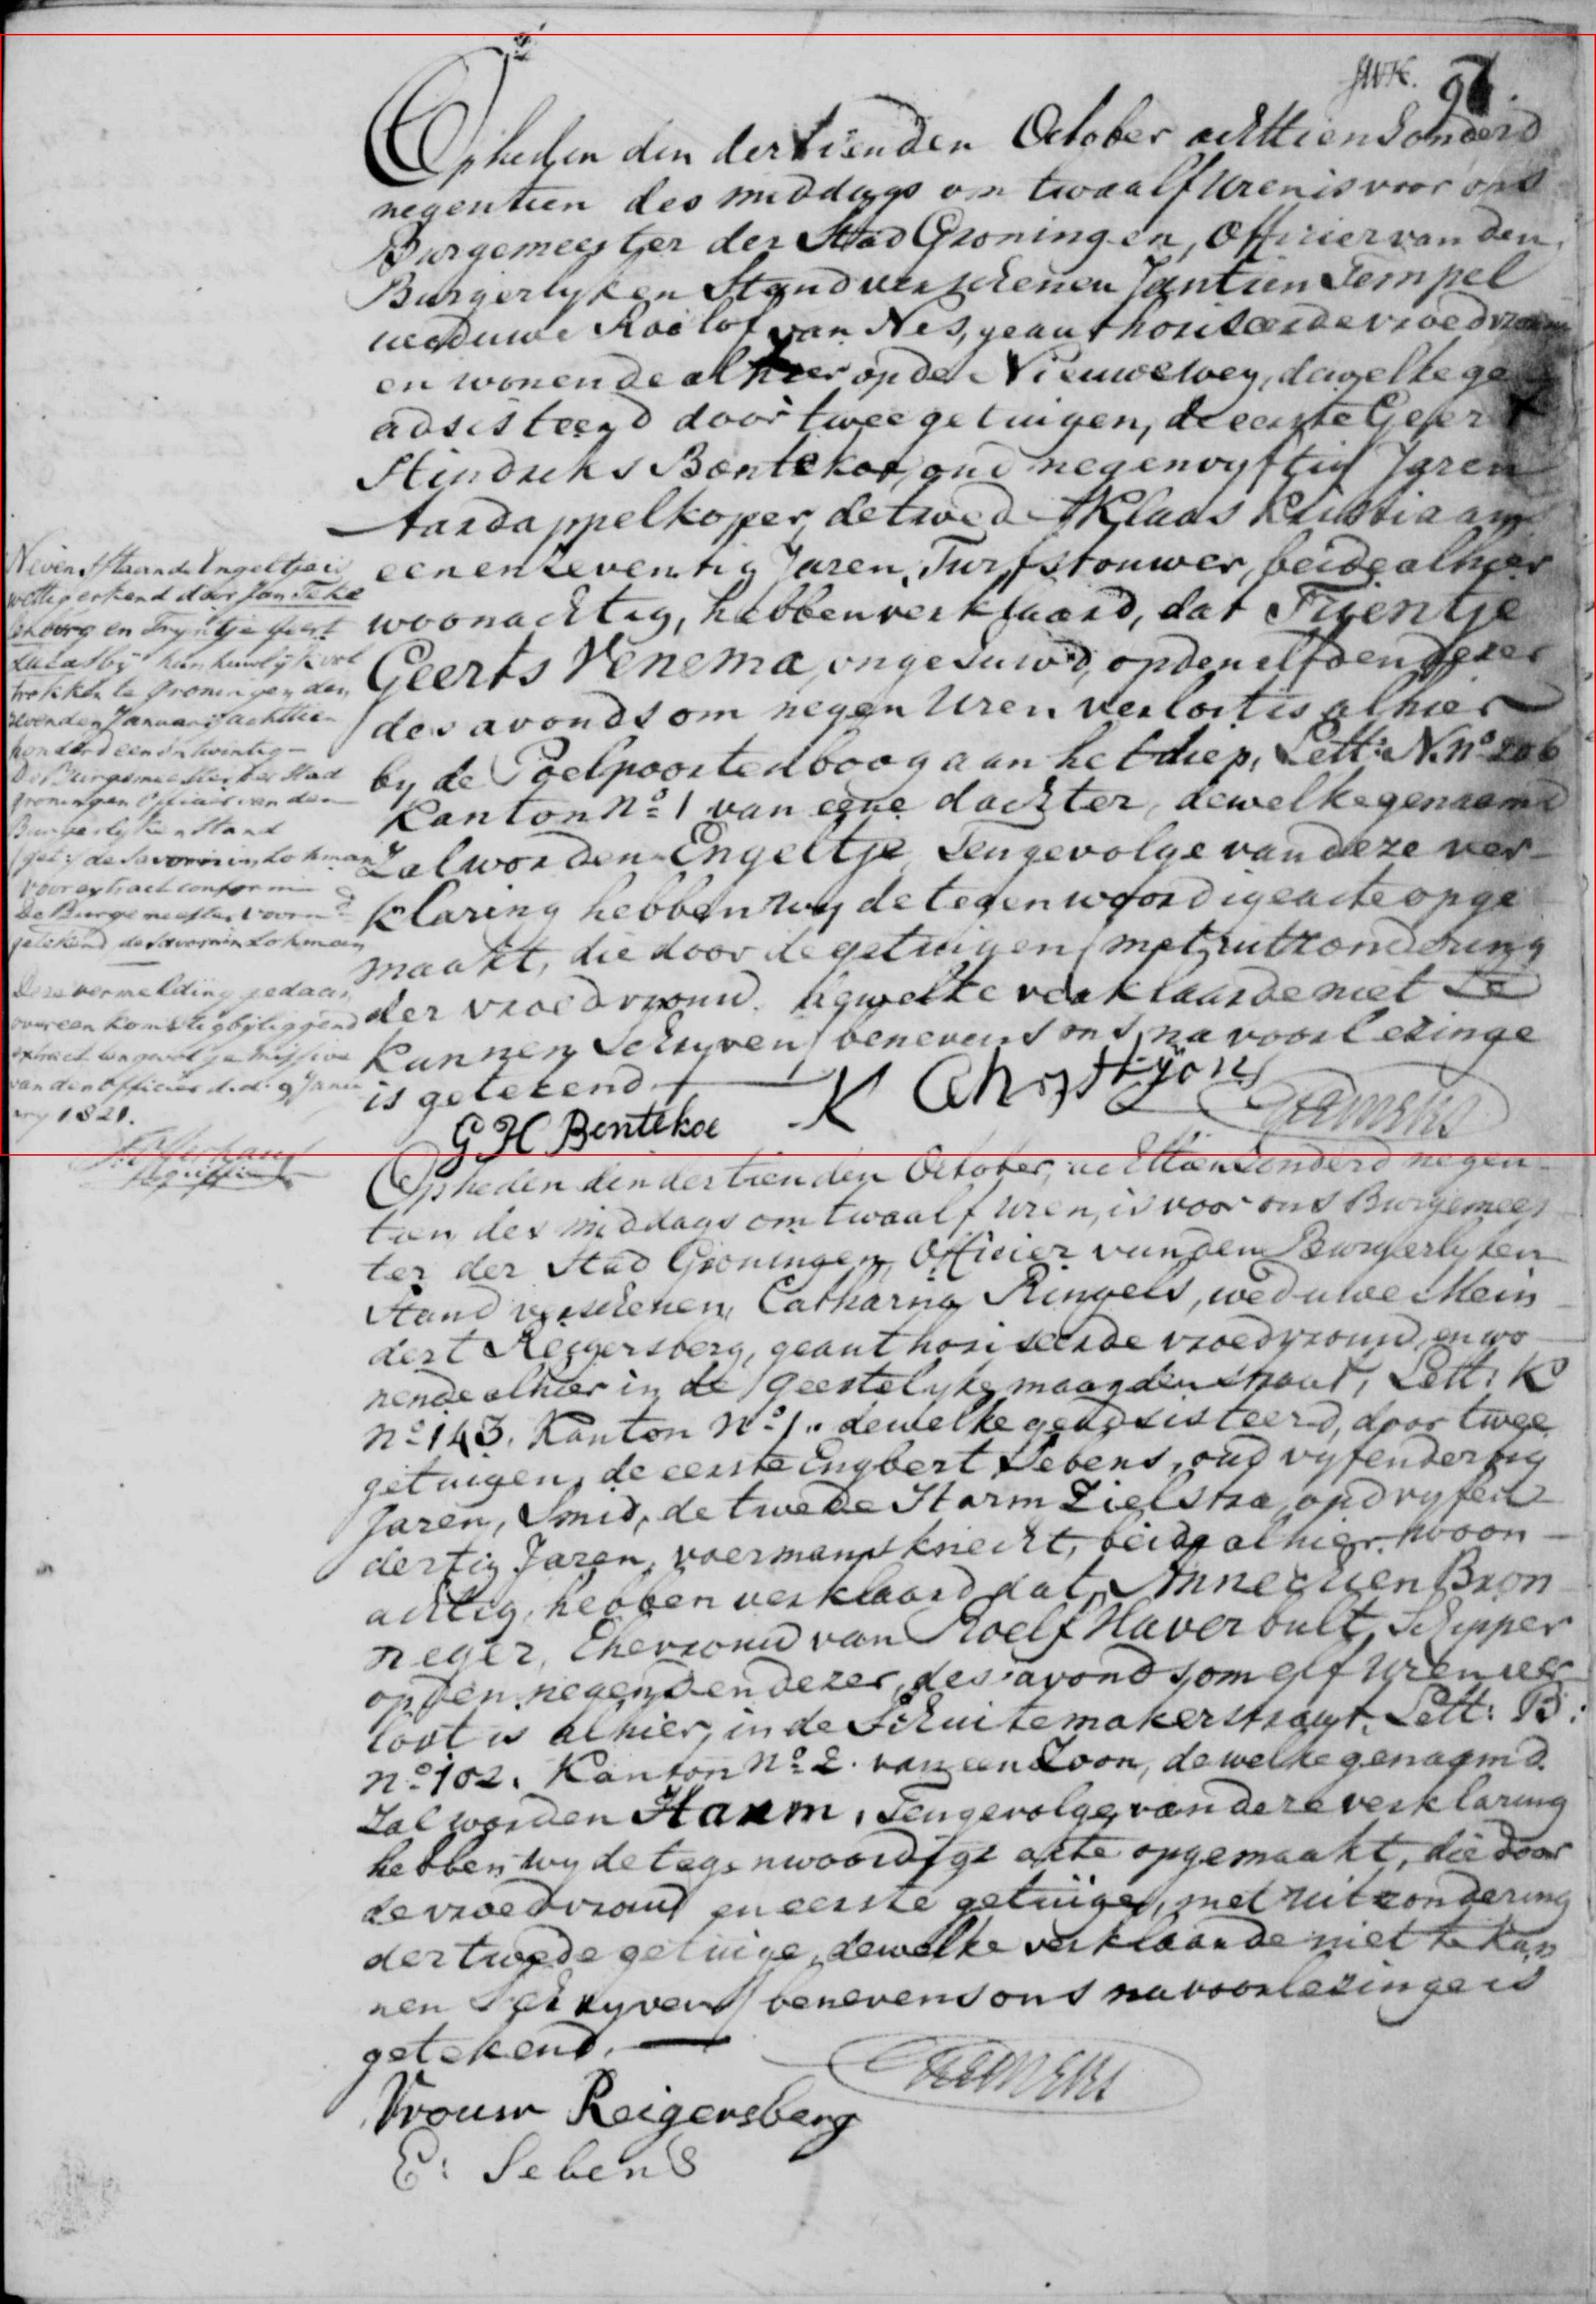 Opheden den dertienden October achttienhonderd
negentien des middags om twaalf uren is voor ons
Burgemeester der Stad Groningen, Officier van den
Burgerlyken Stand verschenen Jantien Tempel
weduwe Roelof van Nes, geauthoriseerde vroedvrouw
en wonende alhier op de Nieuweweg, dewelke ge
adsisteerd door twee getuigen, de eerste Geert
Hindriks Bontekoe, oud negenvyftig Jaren
Aardappelkoper, de twede Klaas Kristiaans
eenenzeventig Jaren, Turfstouwer, beide alhier
woonachtig, hebben verklaard, dat Trientje
Geerts Venema, ongehuwd, op den elfden dezer
des avonds om negen Uren verlost is alhier
by de Poelpoortenboog aan het diep, Lett: N. No 206
Kanton No 1 van eene dochter, dewelke genaamd
Zal worden Engeltje, Tengevolge van deze ver-
klaring hebben wy de tegenwoordige acte opge
maakt, die door de getuigen (met uitzondering
der vroedvrouw dewelke verklaarde niet te
kunnen Schryven) benevens ons na voorlezinge
is getekend
G H Bontekoe K Christyons
Nevenstaande Engeltje is
wettig erkend door Jan
en Tryntje Geert
by hun huwlyk vol
trokken te Groningen den
Januarij achttien
honderd eenentwintig
De Burgemeester der Stad
Groningen Officier van den
Burgerlyken Stand
(get:) de Savornin Lohman
voor extract conform
De Burgemeester voorn
getekend de Savornin Lohman
Deze vermelding gedaan
overeenkomstig byliggend
extract missive
van den Officier d.d. 9 Janu
ary 1821.
Opheden den dertienden October, achttienhonderd negen
tien des middags om twaalf uren, is voor ons Burgemees
ter der Stad Groningen, Officier van den Burgerlyken
Stand verschenen, Catharina Ringels, weduwe Mein
dert Reigersberg, geauthoriseerde vroedvrouw, en wo
nende alhier in de geestelyke maagdenstraat, Lett: K
No 143. Kanton No 1. dewelke geadsisteerd, door twee
getuigen, de eerste Engbert Sebens, oud vyfendertig
Jaren, Smid, de twede Harm Zielstra, oud vyfen
dertig Jaren, voermansknecht, beide alhier woon
achtig, hebben verklaard dat, Annechien Bron
neger, Ehevrouw van Roelf Haverbult, Schipper
op den negenden dezer, des avonds om elf uren ver
lost is alhier, in de Schuitemakerstraat, Lett: B:
No 102. Kanton No 2. van een Zoon, dewelke genaamd
Zal worden Harm, Tengevolge van deze verklaring
hebben wy de tegenwoordige akte opgemaakt, die door
de vroedvrouw en eerste getuige, (met uitzondering
der twede getuige, dewelke verklaarde niet te kun
nen Schryven) benevens ons na voorlezinge is
getekend.
Vrouw Reigersberg
E: Sebens